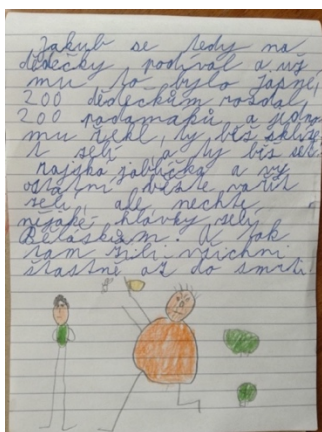 Jakub se tedy na
dědečky podíval a už
mu to bylo jasné,
200 dědečkům rozdal
200 padamáků a jedno
mu řekl, ty běž sklize
t zelí a ty běž sbí
rajská jablíčka a vy
ostatní běžte vařit
zelí, ale nechte
nějaké hlávky zelí
Běláskům. A tak
tam žili všichni
šťastně až do smrti.